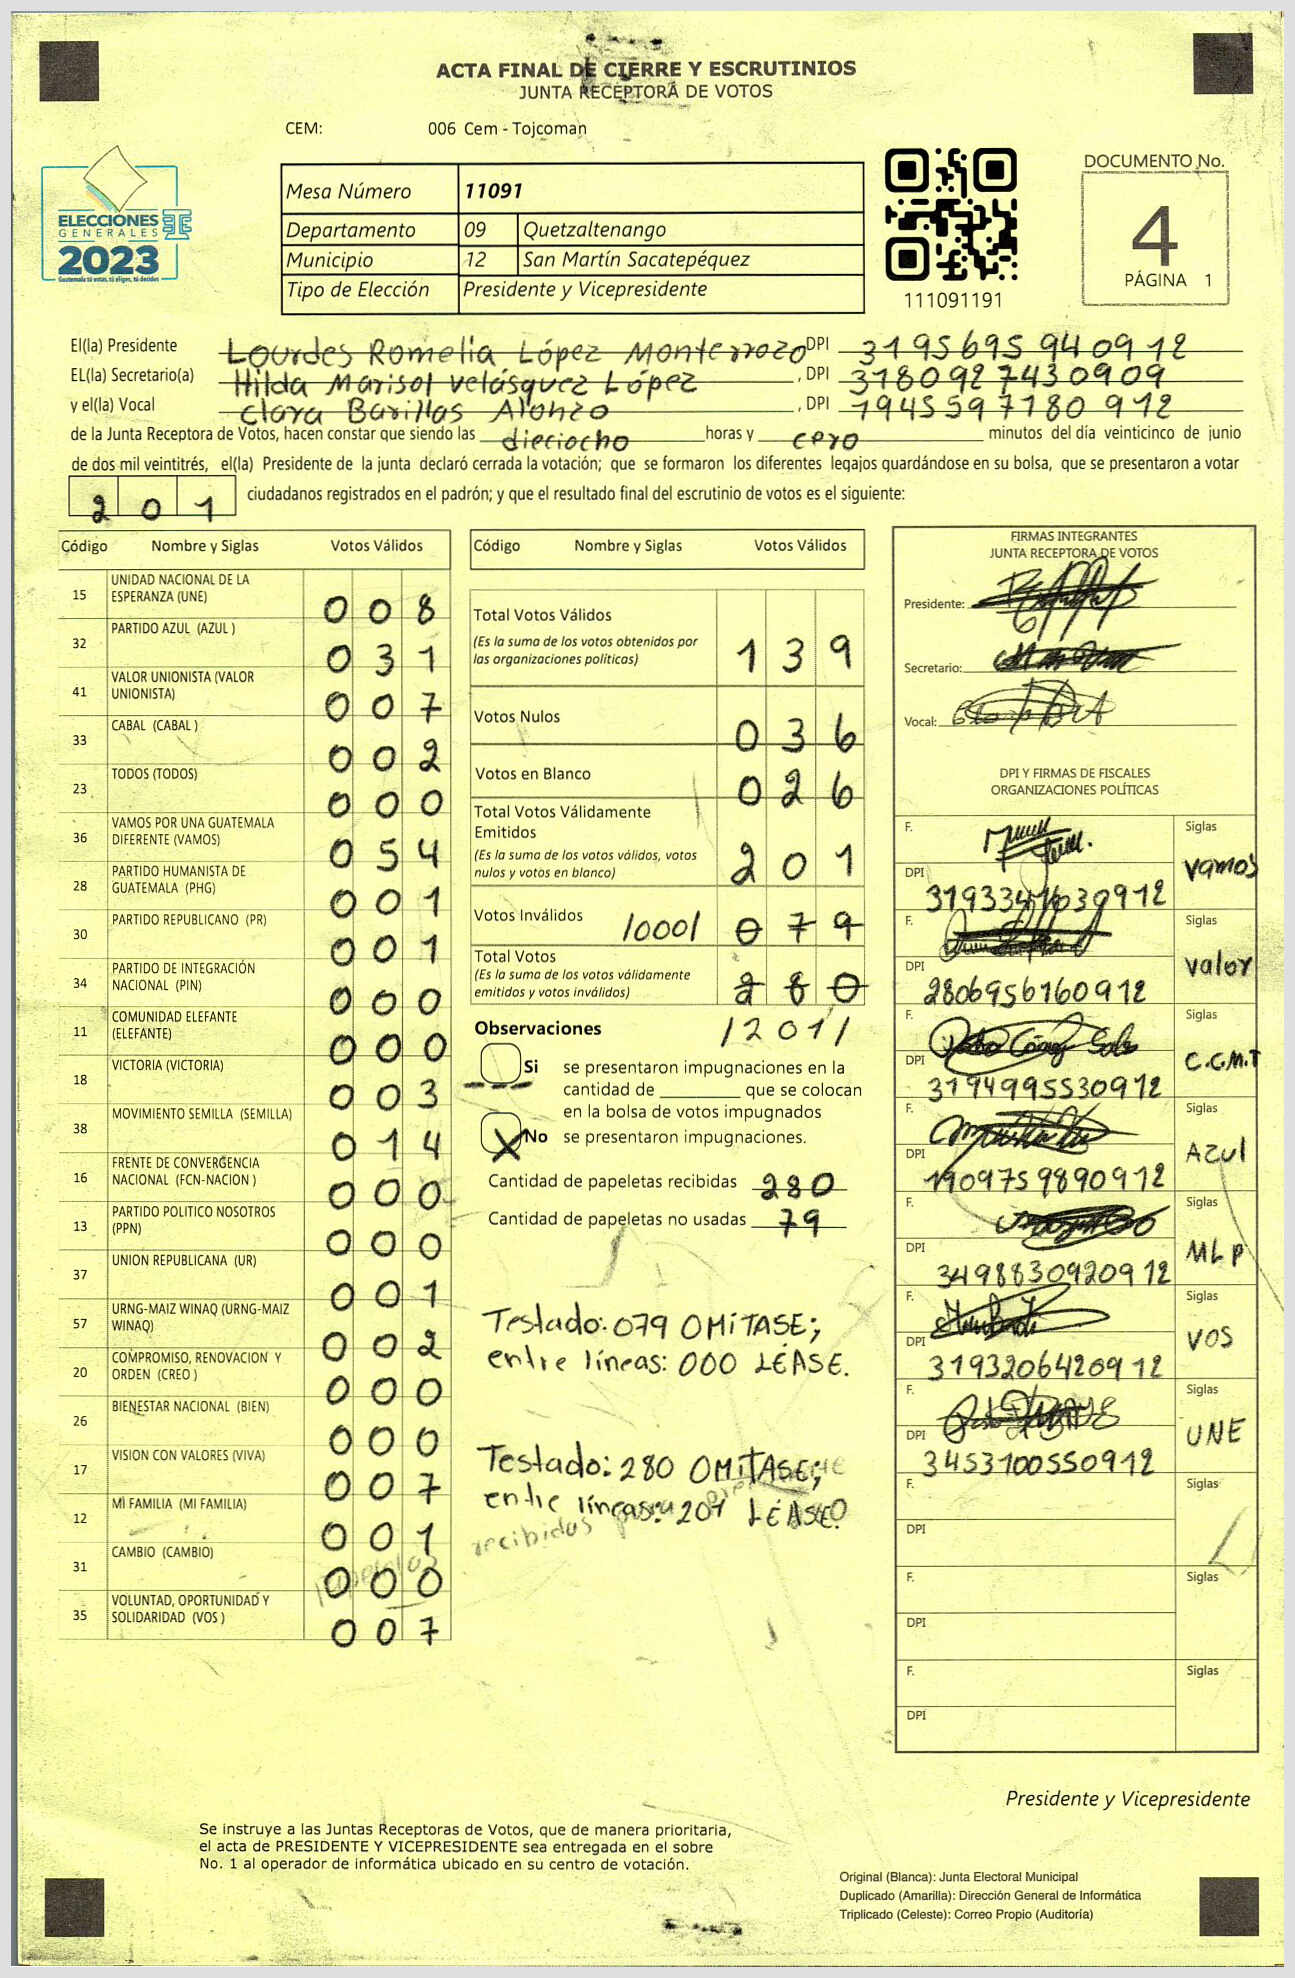 ACTA FINAL DE CIERRE Y ESCRUTINIOS
JUNTA RECEPTORA DE VOTOS
CEM: 006 Cem - Tojcoman
ELECCIONES
GENERALES
2023
Guatemala tú votas, tú eliges, tú decides
Mesa Número 11091
Departamento 09 Quetzaltenango
Municipio 12 San Martín Sacatepéquez
Tipo de Elección Presidente y Vicepresidente
111091191
DOCUMENTO No.
4
PÁGINA 1
El(la) Presidente Lourdes Romelia López Monterrozo DPI 3195695940912
EL(la) Secretario(a) Hilda Marisol Velásquez López, DPI 3180927430909
y el(la) Vocal Clara Barillas Alonzo, DPI 1945597180912
de la Junta Receptora de Votos, hacen constar que siendo las dieciocho horas y cero minutos del día veinticinco de junio
de dos mil veintitrés, el(la) Presidente de la junta declaró cerrada la votación; que se formaron los diferentes legajos guardándose en su bolsa, que se presentaron a votar
201 ciudadanos registrados en el padrón; y que el resultado final del escrutinio de votos es el siguiente:
Código Nombre y Siglas Votos Válidos
15 UNIDAD NACIONAL DE LA ESPERANZA (UNE) 008
32 PARTIDO AZUL (AZUL ) 031
41 VALOR UNIONISTA (VALOR UNIONISTA) 007
33 CABAL (CABAL ) 002
23 TODOS (TODOS) 000
36 VAMOS POR UNA GUATEMALA DIFERENTE (VAMOS) 054
28 PARTIDO HUMANISTA DE GUATEMALA (PHG) 001
30 PARTIDO REPUBLICANO (PR) 001
34 PARTIDO DE INTEGRACIÓN NACIONAL (PIN) 000
11 COMUNIDAD ELEFANTE (ELEFANTE) 000
18 VICTORIA (VICTORIA) 003
38 MOVIMIENTO SEMILLA (SEMILLA) 014
16 FRENTE DE CONVERGENCIA NACIONAL (FCN-NACION ) 000
13 PARTIDO POLITICO NOSOTROS (PPN) 000
37 UNION REPUBLICANA (UR) 001
57 URNG-MAIZ WINAQ (URNG-MAIZ WINAQ) 002
20 COMPROMISO, RENOVACION Y ORDEN (CREO ) 000
26 BIENESTAR NACIONAL (BIEN) 000
17 VISION CON VALORES (VIVA) 007
12 MI FAMILIA (MI FAMILIA) 001
31 CAMBIO (CAMBIO) 000
35 VOLUNTAD, OPORTUNIDAD Y SOLIDARIDAD (VOS ) 007
Código Nombre y Siglas Votos Válidos
Total Votos Válidos
(Es la suma de los votos obtenidos por
las organizaciones políticas) 139
Votos Nulos 036
Votos en Blanco 026
Total Votos Válidamente
Emitidos
(Es la suma de los votos válidos, votos
nulos y votos en blanco) 201
Votos Inválidos /000/ 079
Total Votos
(Es la suma de los votos válidamente
emitidos y votos inválidos) 280
Observaciones /201/
Si se presentaron impugnaciones en la
cantidad de ________ que se colocan
en la bolsa de votos impugnados
X No se presentaron impugnaciones.
Cantidad de papeletas recibidas 280
Cantidad de papeletas no usadas 79
Testado: 079 OMITASE;
entre líneas: 000 LÉASE.
Testado: 280 OMITASE;
entre líneas: 201 LÉASE.
recibidos
FIRMAS INTEGRANTES
JUNTA RECEPTORA DE VOTOS
Presidente:
Secretario:
Vocal:
DPI Y FIRMAS DE FISCALES
ORGANIZACIONES POLÍTICAS
F. Siglas
DPI vamos
F. Siglas
DPI 2806956160912 valor
F. Siglas
DPI 3194995530912 C.C.M.T
F. Siglas
DPI 1909759890912 Azul
F. Siglas
DPI 3498830920912 MLP
F. Siglas
DPI 3193206420912 VOS
F. Siglas
DPI 3453100550912 UNE
F. Siglas
DPI
F. Siglas
DPI
F. Siglas
DPI
Presidente y Vicepresidente
Se instruye a las Juntas Receptoras de Votos, que de manera prioritaria,
el acta de PRESIDENTE Y VICEPRESIDENTE sea entregada en el sobre
No. 1 al operador de informática ubicado en su centro de votación.
Original (Blanca): Junta Electoral Municipal
Duplicado (Amarilla): Dirección General de Informática
Triplicado (Celeste): Correo Propio (Auditoría)